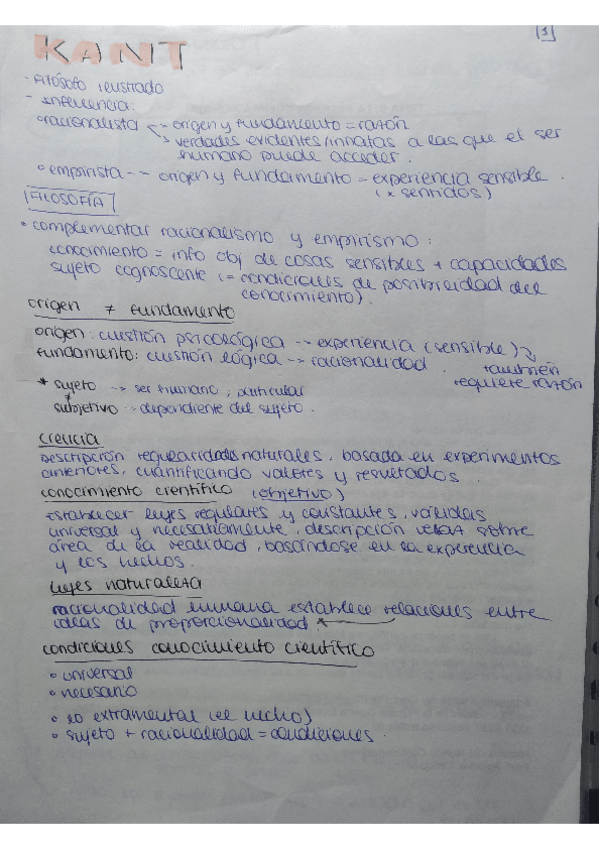 1
KANT
- Filósofo ilustrado
- Influencia:
° racionalista -- origen y fundamento = razón
verdades evidentes/innatas a las que el ser
humano puede acceder.
° empirista -- origen y fundamento = experiencia sensible.
(x sentidos)
FILOSOFÍA
• complementar racionalismo y empirismo:
conocimiento = info obj de cosas sensibles + capacidades
sujeto cognoscente (= condiciones de posibilidad del
conocimiento).
origen ≠ fundamento
origen: cuestión psicológica -- experiencia (sensible)
fundamento: cuestión lógica -- racionalidad. también
requiere razón
* sujeto --> ser humano, particular
≠
subjetivo -- dependiente del sujeto.
ciencia
Descripción regularidades naturales, basada en experimentos
anteriores, cuantificando valores y resultados.
conocimiento científico (objetivo)
Establecer leyes regulares y constantes, válidas
universal y necesariamente, descripción veraz sobre
área de la realidad, basándose en la experiencia
y los hechos.
Leyes naturaleza
racionalidad humana establece relaciones entre
ideas de proporcionalidad. *
condiciones conocimiento científico
° universal
° necesario
° lo extramental (el hecho)
° sujeto + racionalidad = condiciones.